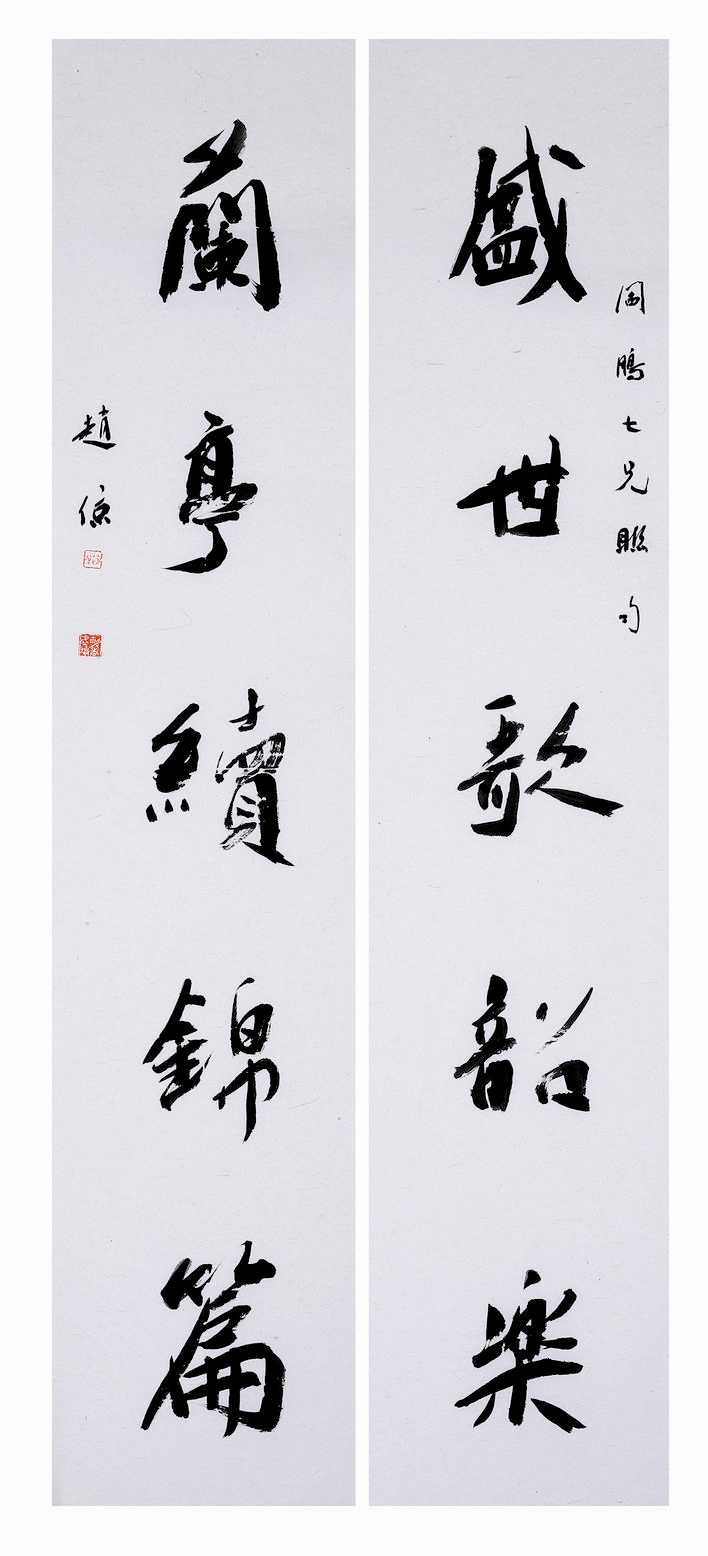 鵬七兄聯句
盛世歌韶楽
蘭亭續錦篇
趙倞